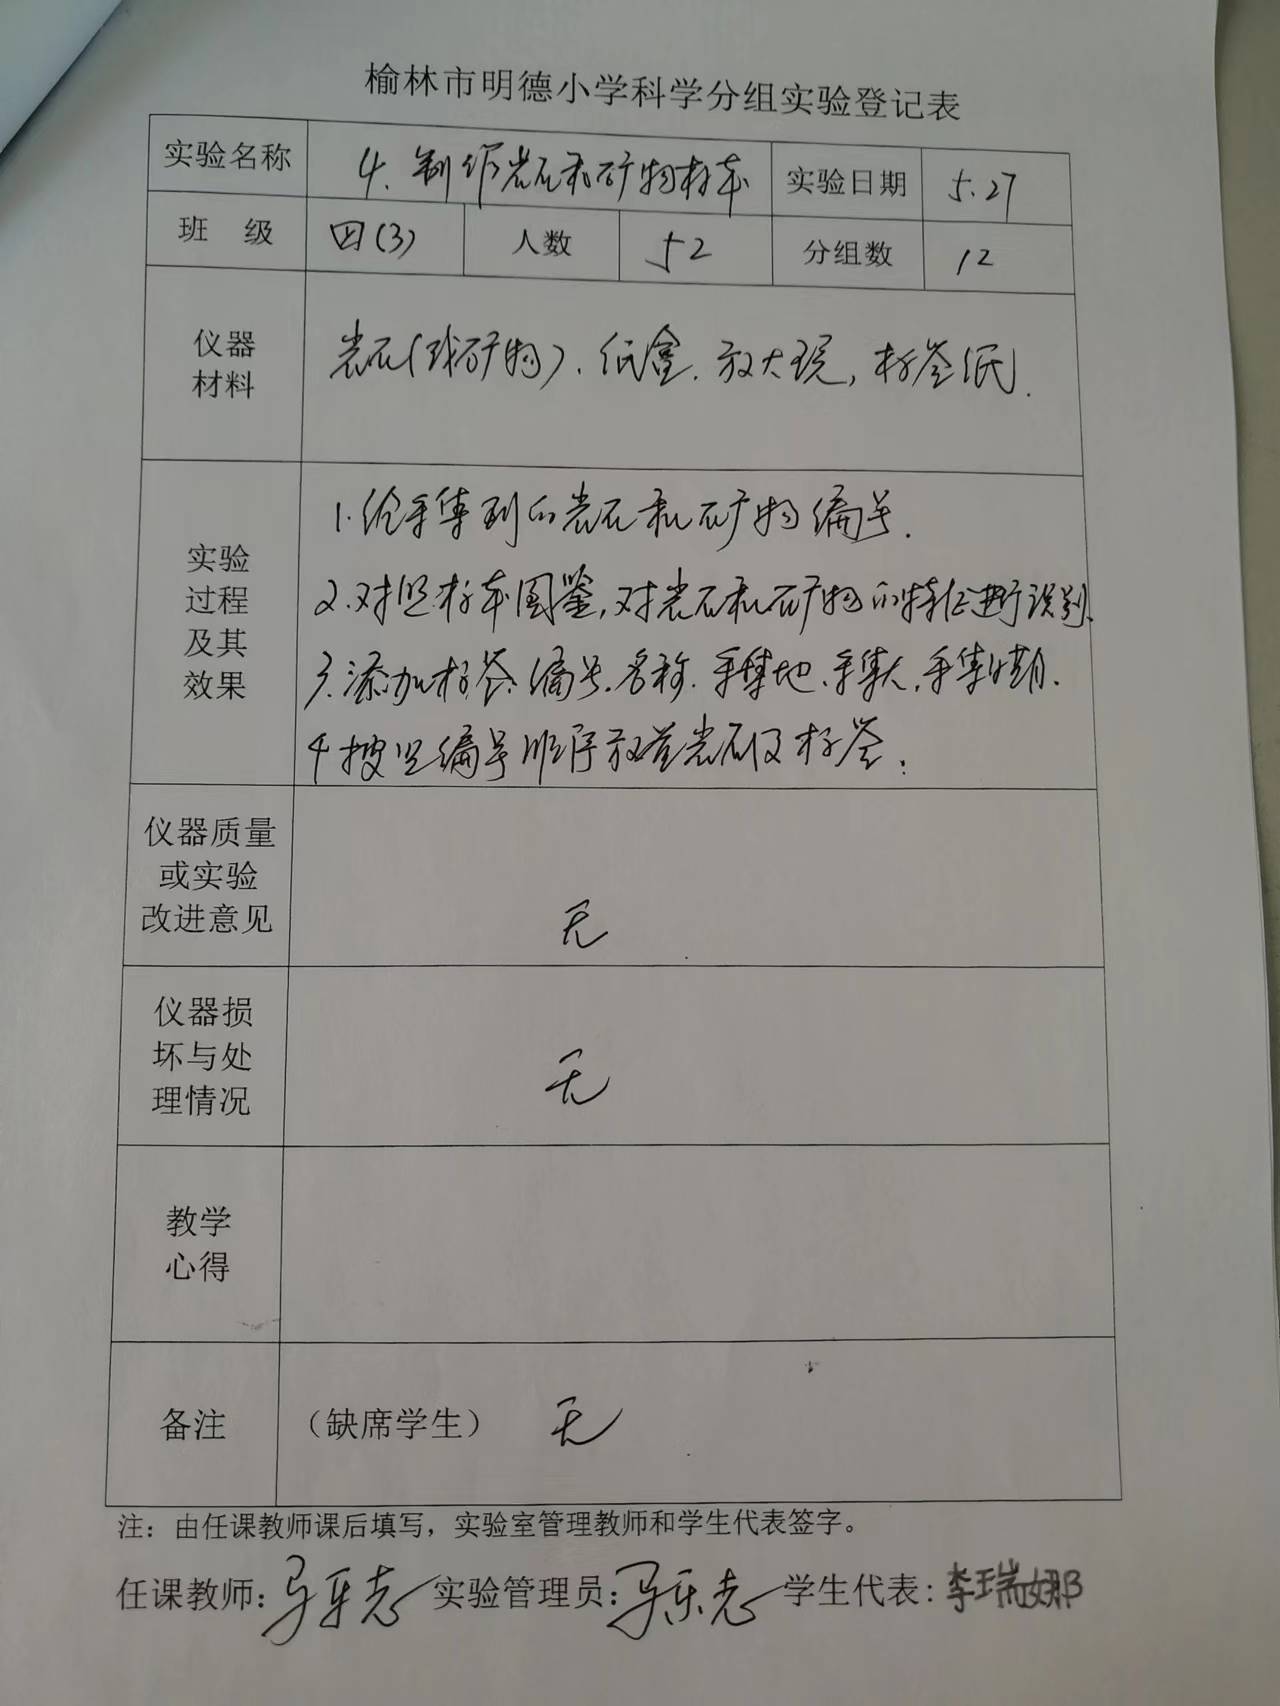 榆林市明德小学科学分组实验登记表
实验名称 4.制作岩石和矿物标本 实验日期 5.27
班 级 四(3) 人数 52 分组数 12
仪器材料 岩石(或矿物)、纸盒、放大镜,标签纸.
实验过程及其效果
1.给采集到的岩石和矿物编号.
2.对照标本图鉴,对岩石和矿物的特征进行识别.
3.添加标签、编号、名称、采集地、采集人、采集日期.
4按照编号顺序放置岩石及标签.
仪器质量或实验改进意见 无
仪器损坏与处理情况 无
教学心得
备注 (缺席学生) 无
注:由任课教师课后填写,实验室管理教师和学生代表签字。
任课教师: 实验管理员: 学生代表:李瑞娜